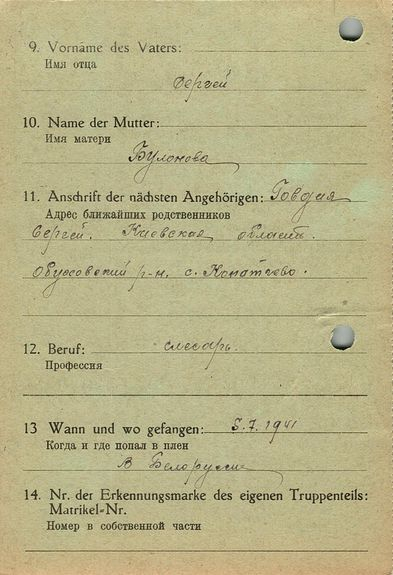 9. Vorname des Vaters:
Имя отца
Сергей
10. Name der Mutter:
Имя матери
Булонова
11. Anschrift der nächsten Angehörigen: Говдия
Адрес ближайших родственников
Сергей. Киевская область.
Обуховский р-н. с.
12. Beruf: слесарь.
Профессия
13 Wann und wo gefangen: 5.7.1941
Когда и где попал в плен
В Белоруссие
14. Nr. der Erkennungsmarke des eigenen Truppenteils:
Matrikel-Nr.
Номер в собственной части